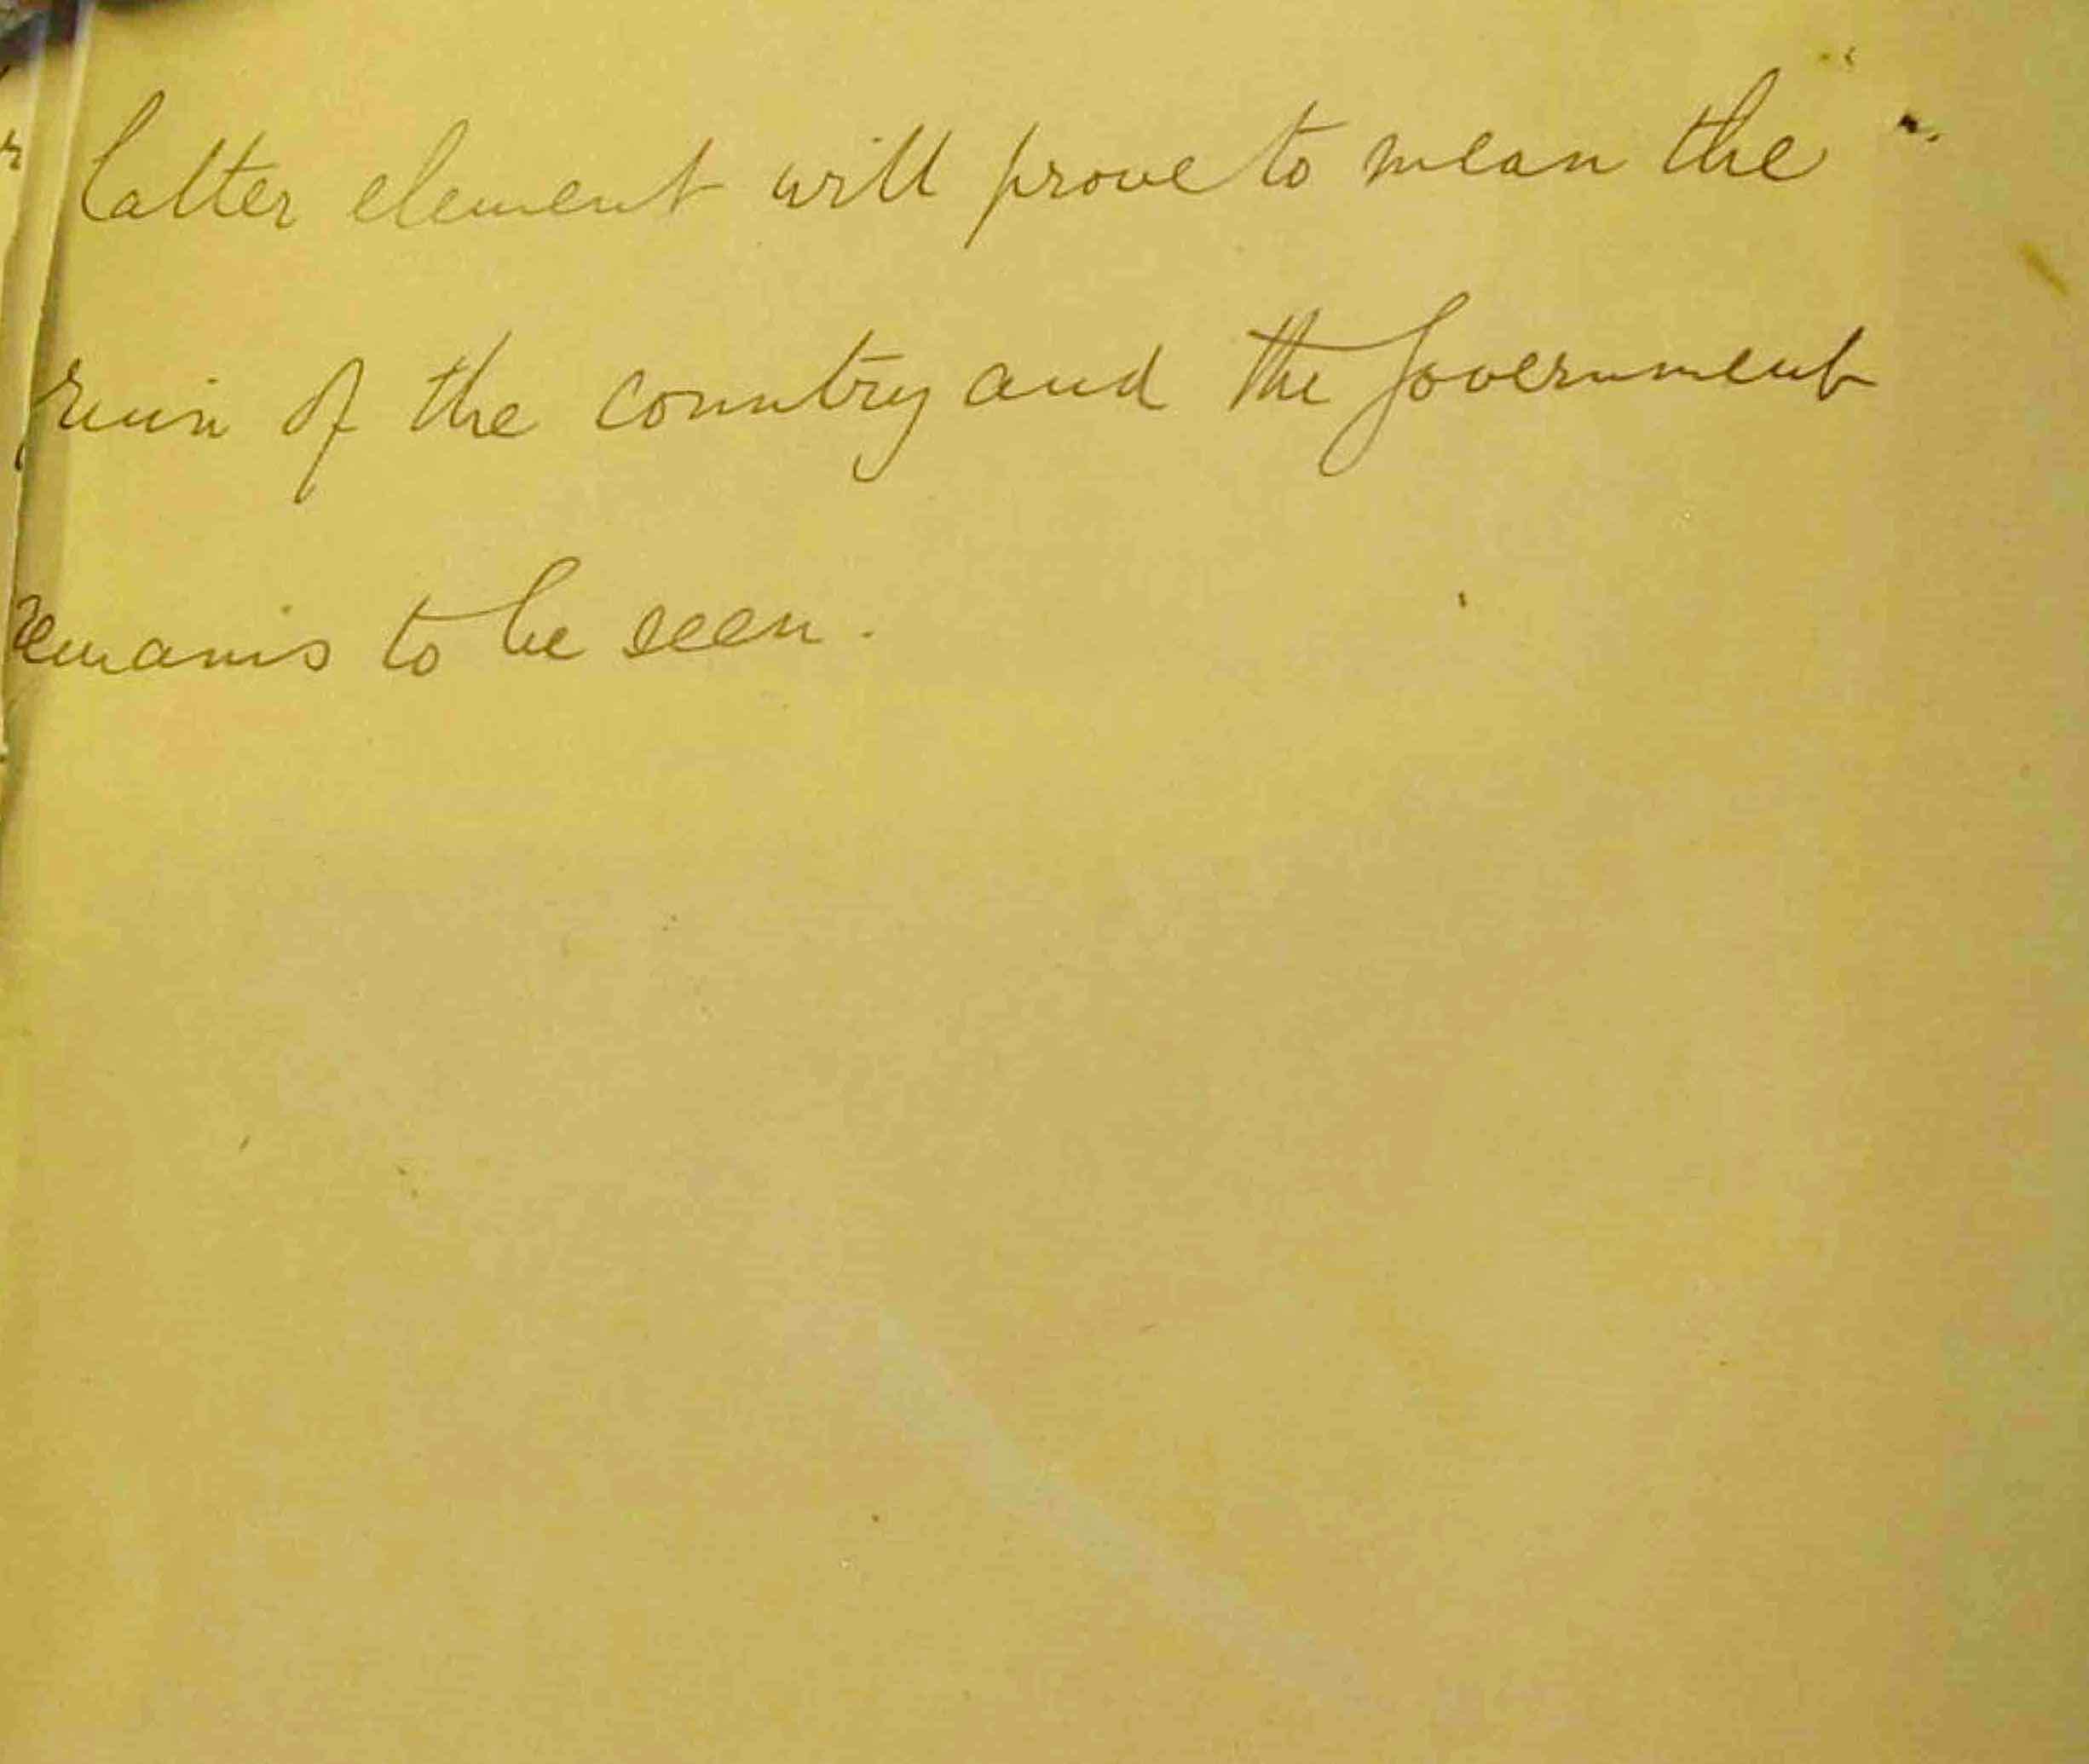 latter element will prove to mean the
ruin of the country and the Government
remains to be seen.